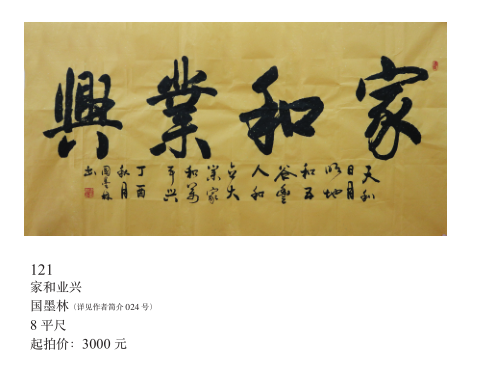 家和業興
天和
日月
明地
和五
谷豐
人和
大
業家
和萬
事兴
丁酉
秋月
國墨林
书
121
家和业兴
国墨林（详见作者简介 024 号）
8 平尺
起拍价：3000 元